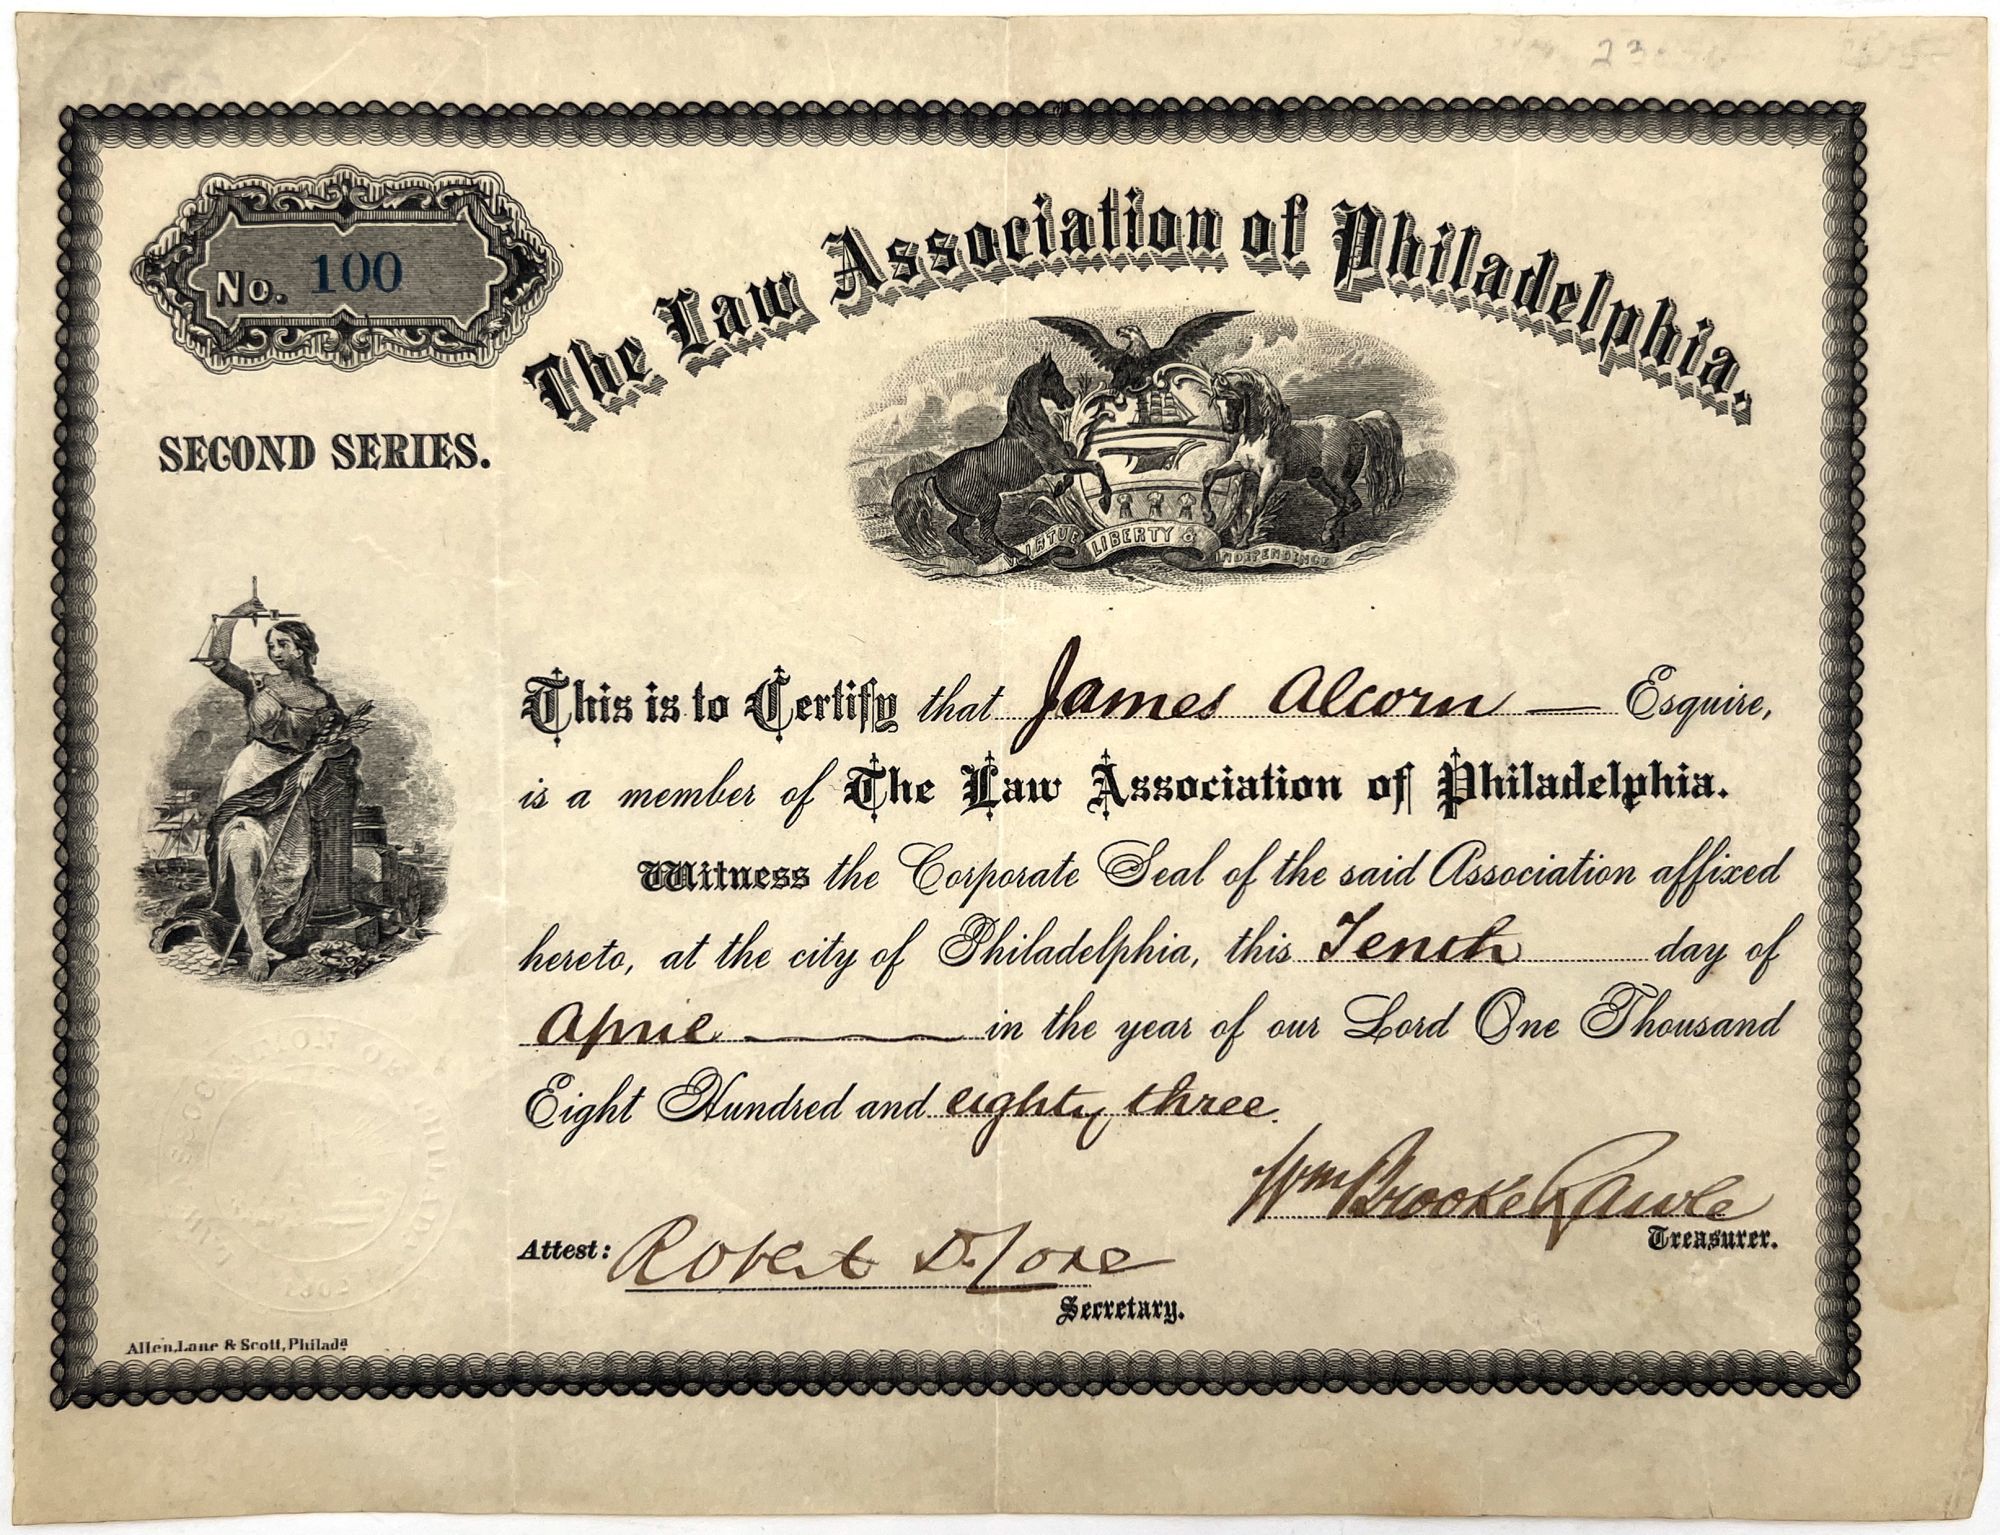 The Law Association of Philadelphia.
No. 100
SECOND SERIES.
VIRTUE LIBERTY & INDEPENDENCE
This is to Certify that James Alcorn — Esquire,
is a member of The Law Association of Philadelphia.
Witness the Corporate Seal of the said Association affixed
hereto, at the city of Philadelphia, this Tenth day of
April in the year of our Lord One Thousand
Eight Hundred and eighty three.
Wm Brooke Rawle
Treasurer.
Attest: Robert D. Coxe
Secretary.
Allen, Lane & Scott, Philada